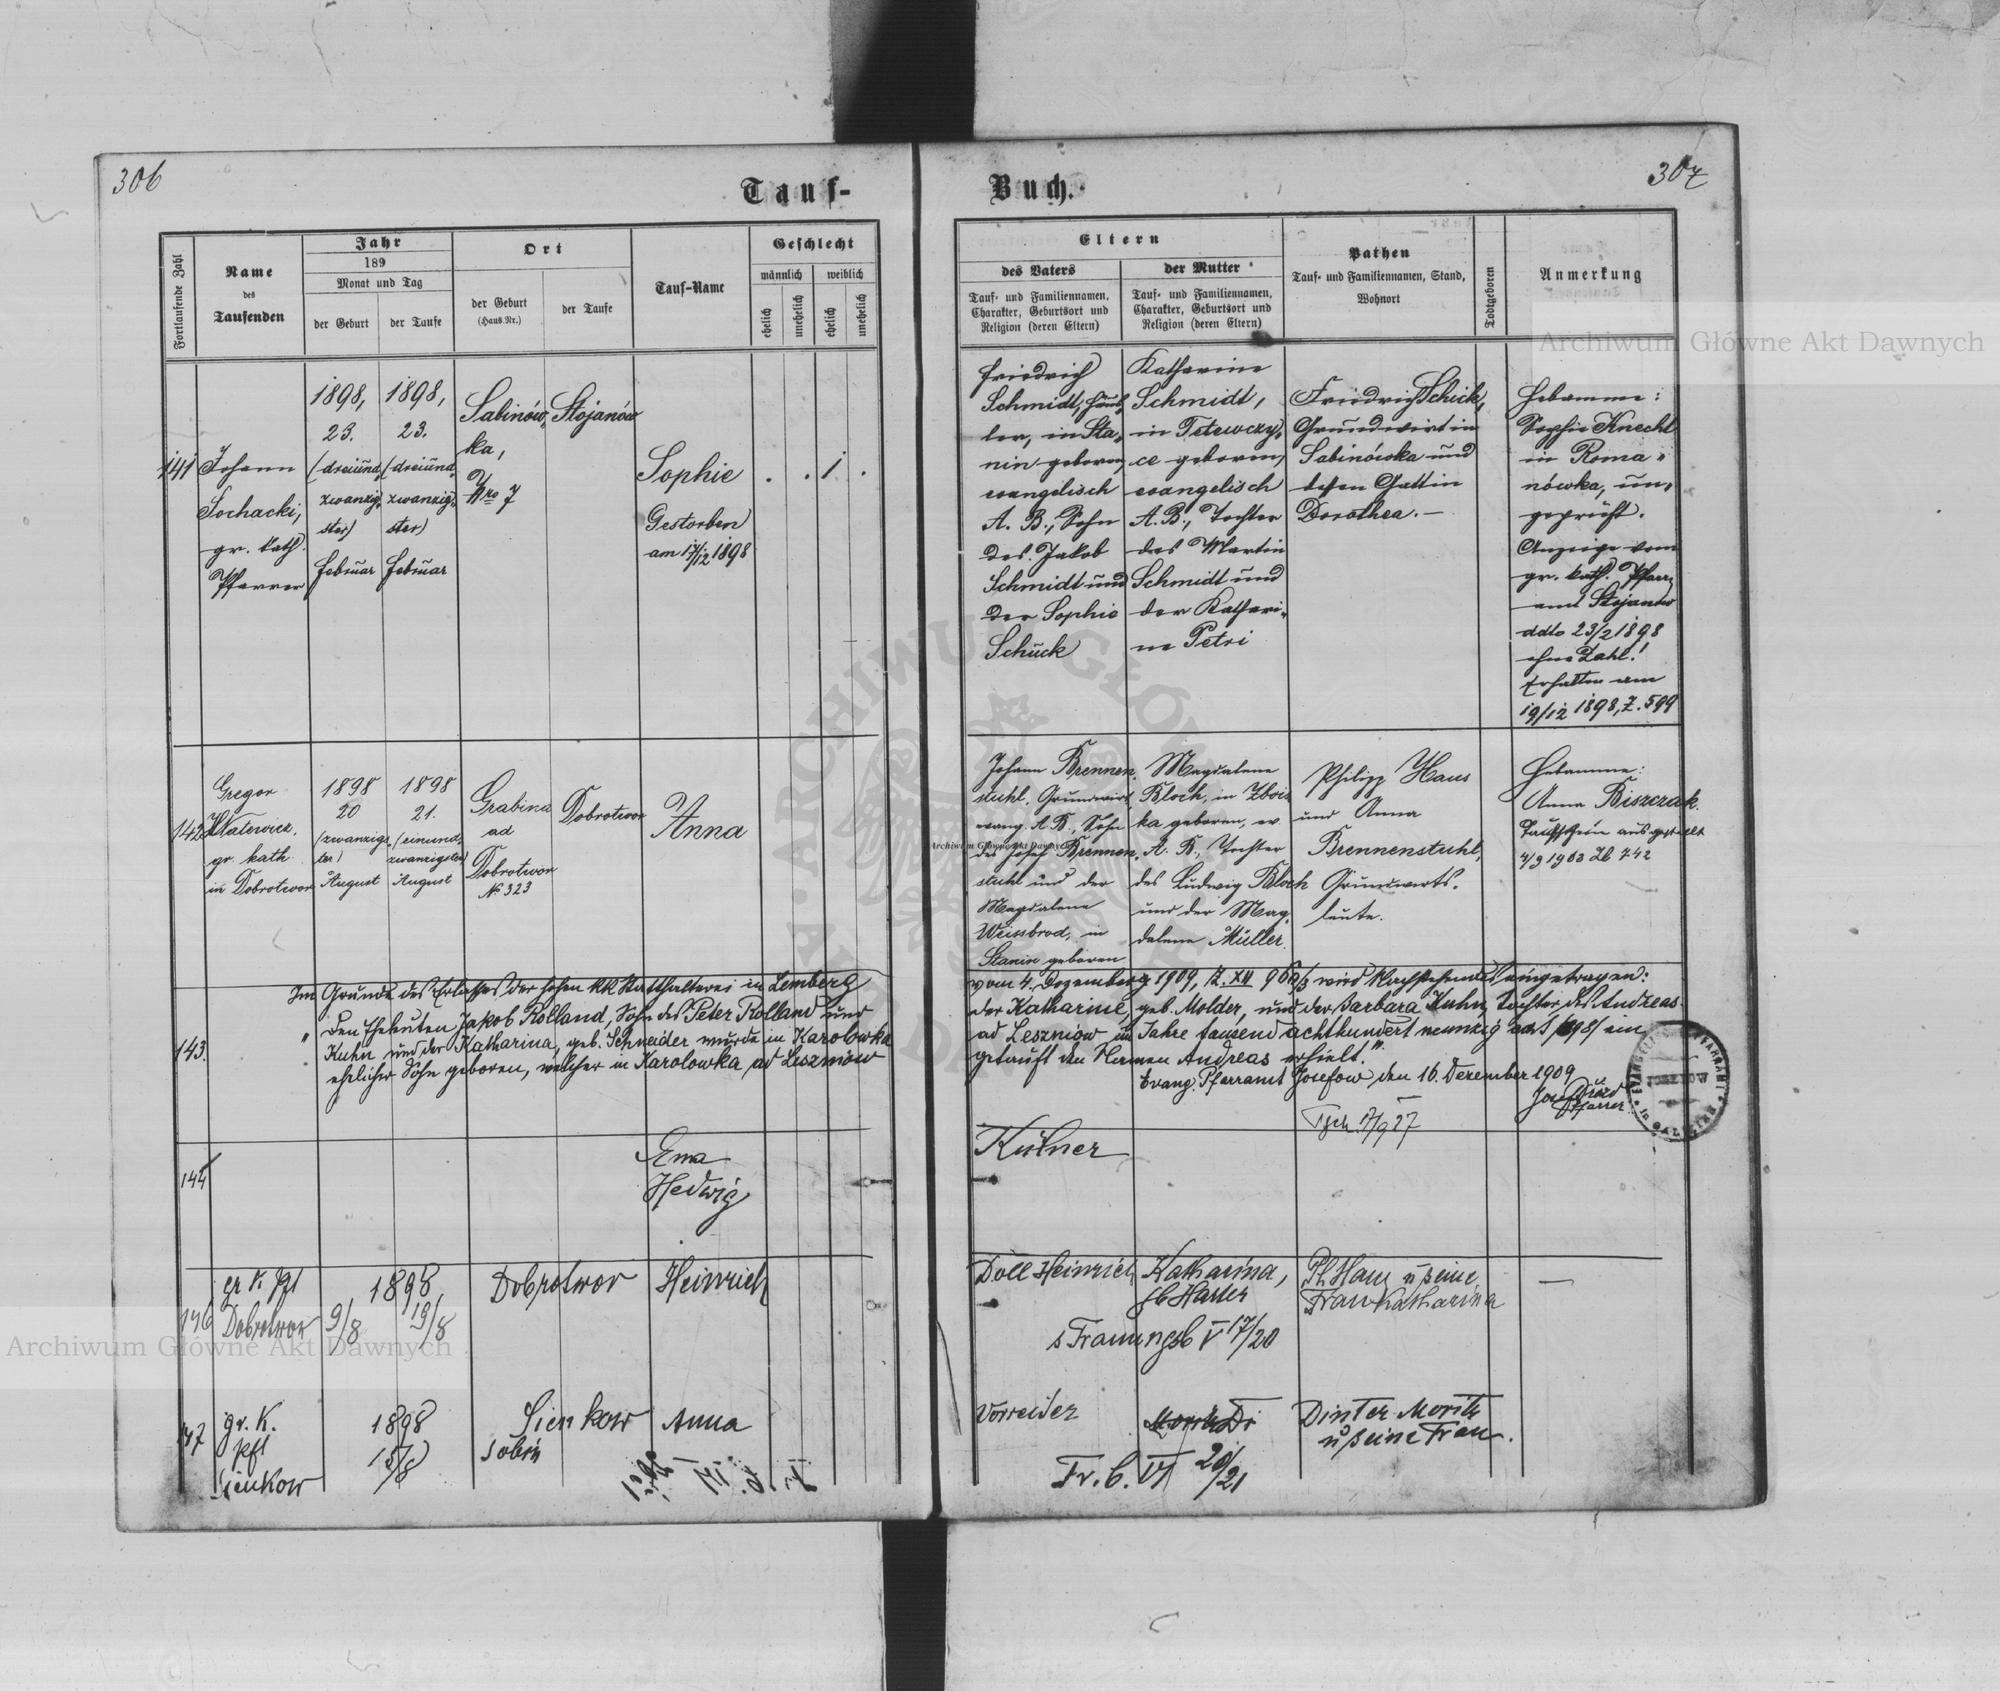 306
307
Tauf-
Buch.
Fortlaufende Zahl
Name
des
Taufenden
Jahr
189
Monat und Tag
der Geburt
der Taufe
Ort
der Geburt
(Haus.Nr.)
der Taufe
Tauf-Name
Geschlecht
männlich
weiblich
ehelich
unehelich
ehelich
unehelich
Eltern
des Vaters
Tauf- und Familiennamen,
Charakter, Geburtsort und
Religion (deren Eltern)
der Mutter
Tauf- und Familiennamen,
Charakter, Geburtsort und
Religion (deren Eltern)
Pathen
Tauf- und Familiennamen, Stand,
Wohnort
Todtgeboren
Anmerkung
141
Johann
Sochacki,
gr. kath.
Pfarrer
1898,
23.
(dreiund,
zwanzig,
ster)
Februar
1898,
23.
(dreiund,
zwanzig,
ster)
Februar
Sabinów,
ka,
Nro 7
Stojanów
Sophie
Gestorben
am 17/12 1898
. . 1 .
Friedrich
Schmidt, Häus,
ler, in Sta,
nin geboren,
evangelisch
A. B., Sohn
des Jakob
Schmidt und
der Sophie
Schück
Katharine
Schmidt,
in Tetewczy,
ce geboren,
evangelisch
A. B., Tochter
des Martin
Schmidt und
der Kathari-
ne Petri
Friedrich Schick,
Grundwirt in
Sabinówka und
dessen Gattin
Dorothea. —
Hebamme:
Sophie Knecht
in Roma-
nówka, un,
geprüft.
Anzeige vom
gr. kath. Pfarr,
amt Stojanów
ddto 23/2 1898
ohne Zahl!
Erhalten am
19/12 1898, Z. 599
142
Gregor
gr. kath.
in Dobrotwor
1898
20
(zwanzigs
ter)
August
1898
21.
(einund,
zwanzigster)
August
Grabina
ad
Dobrotwor
№ 323
Dobrotwor
Anna
Johann Brennen,
stuhl, Grundwirt,
evang. A. B., Sohn
des Josef Brennen,
stuhl und der
Magdalene
Weissbrod, in
Stanin geboren
Magdalene
Bloch, in Zbois
ka geboren, ev.
A. B., Tochter
des Ludwig Bloch
und der Mag,
dalene Müller.
Philipp Haus
und Anna
Brennenstuhl,
Grundwirts,
leute.
Hebamme:
Anna Biszczak.
Taufschein ausgestellt
4/9 1903 Zl 742
143.
Im Grunde des Erlasses der hohen kk Statthalterei in Lemberg
vom 4. Dezember 1909, Z. XII wird Nachstehendes eingetragen:
„ Den Eheleuten Jakob Rolland, Sohn des Peter Rolland und
der Katharine, geb. Molder, und der Barbara Kuhn, Tochter des Andreas
Kuhn und der Katharina, geb. Schneider wurde in Karolowka
ad Leszniow im Jahre tausend achthundert neunzig acht /1898/ ein
ehelicher Sohn geboren, welcher in Karolowka ad Leszniow
getauft den Namen Andreas erhielt."
Evang. Pfarramt Josefow, den 16. Dezember 1909
Pfarrer
JOSEFOW
144
Ema
Hedwig
Kütner
146
gr. k. Pf
Dobrotwor
1898
9/8
13/8
Dobrotwor
Heinrich
Doll Heinrich
Katharina,
gb Harler
s Trauungsb V 17/20
Ph. Haus u seine
Frau Katharina
—
147
gr. K.
Pfl
Sienkow
1898
15/8
Sienkow
Anna
Vorreiter
Fr. b. VI 20/21
Dinter Moritz
u seine Frau.
Archiwum Główne Akt Dawnych
Archiwum Główne Akt Dawnych
Archiwum Główne Akt Dawnych